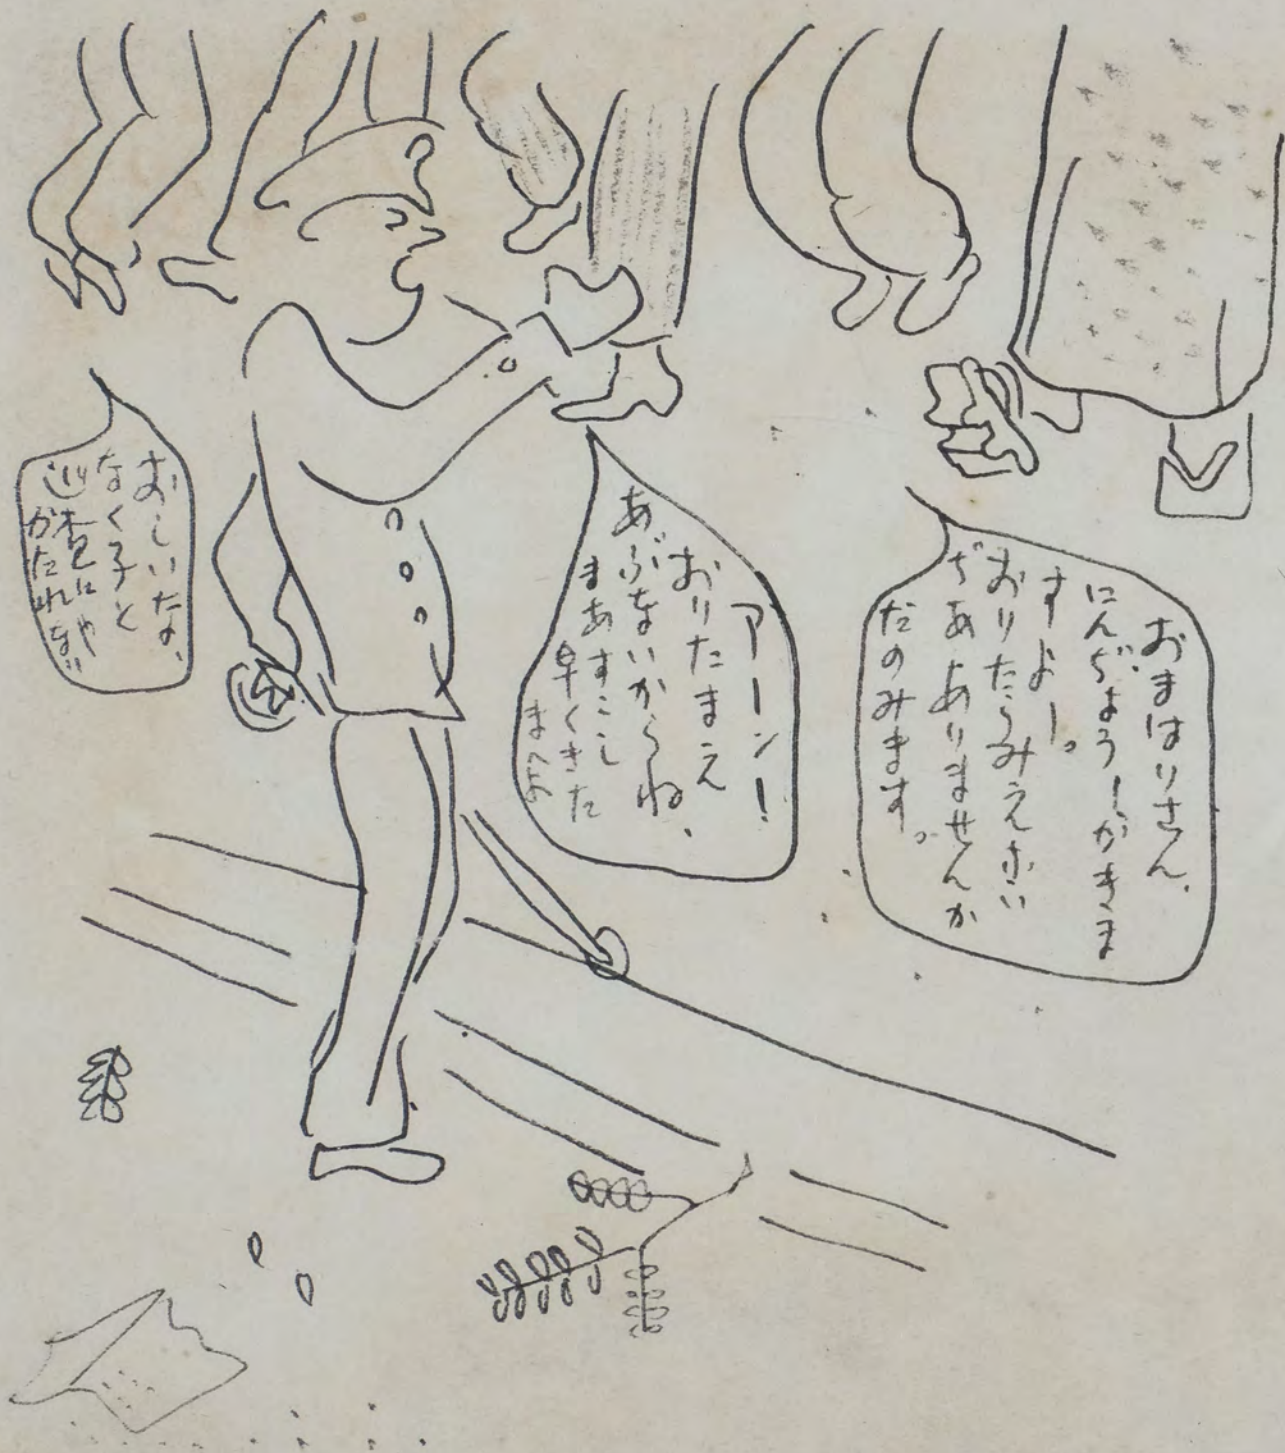 おまはりさん、
にんぢょうしがきま
すよー。
おりたらみえない
ぢあありませんか
たのみます。
アーーン!
おりたまえ
あぶないからね、
まあすこし
早くきた
まへよ
おしいな、
なく子と
巡査にや
かたれぬ